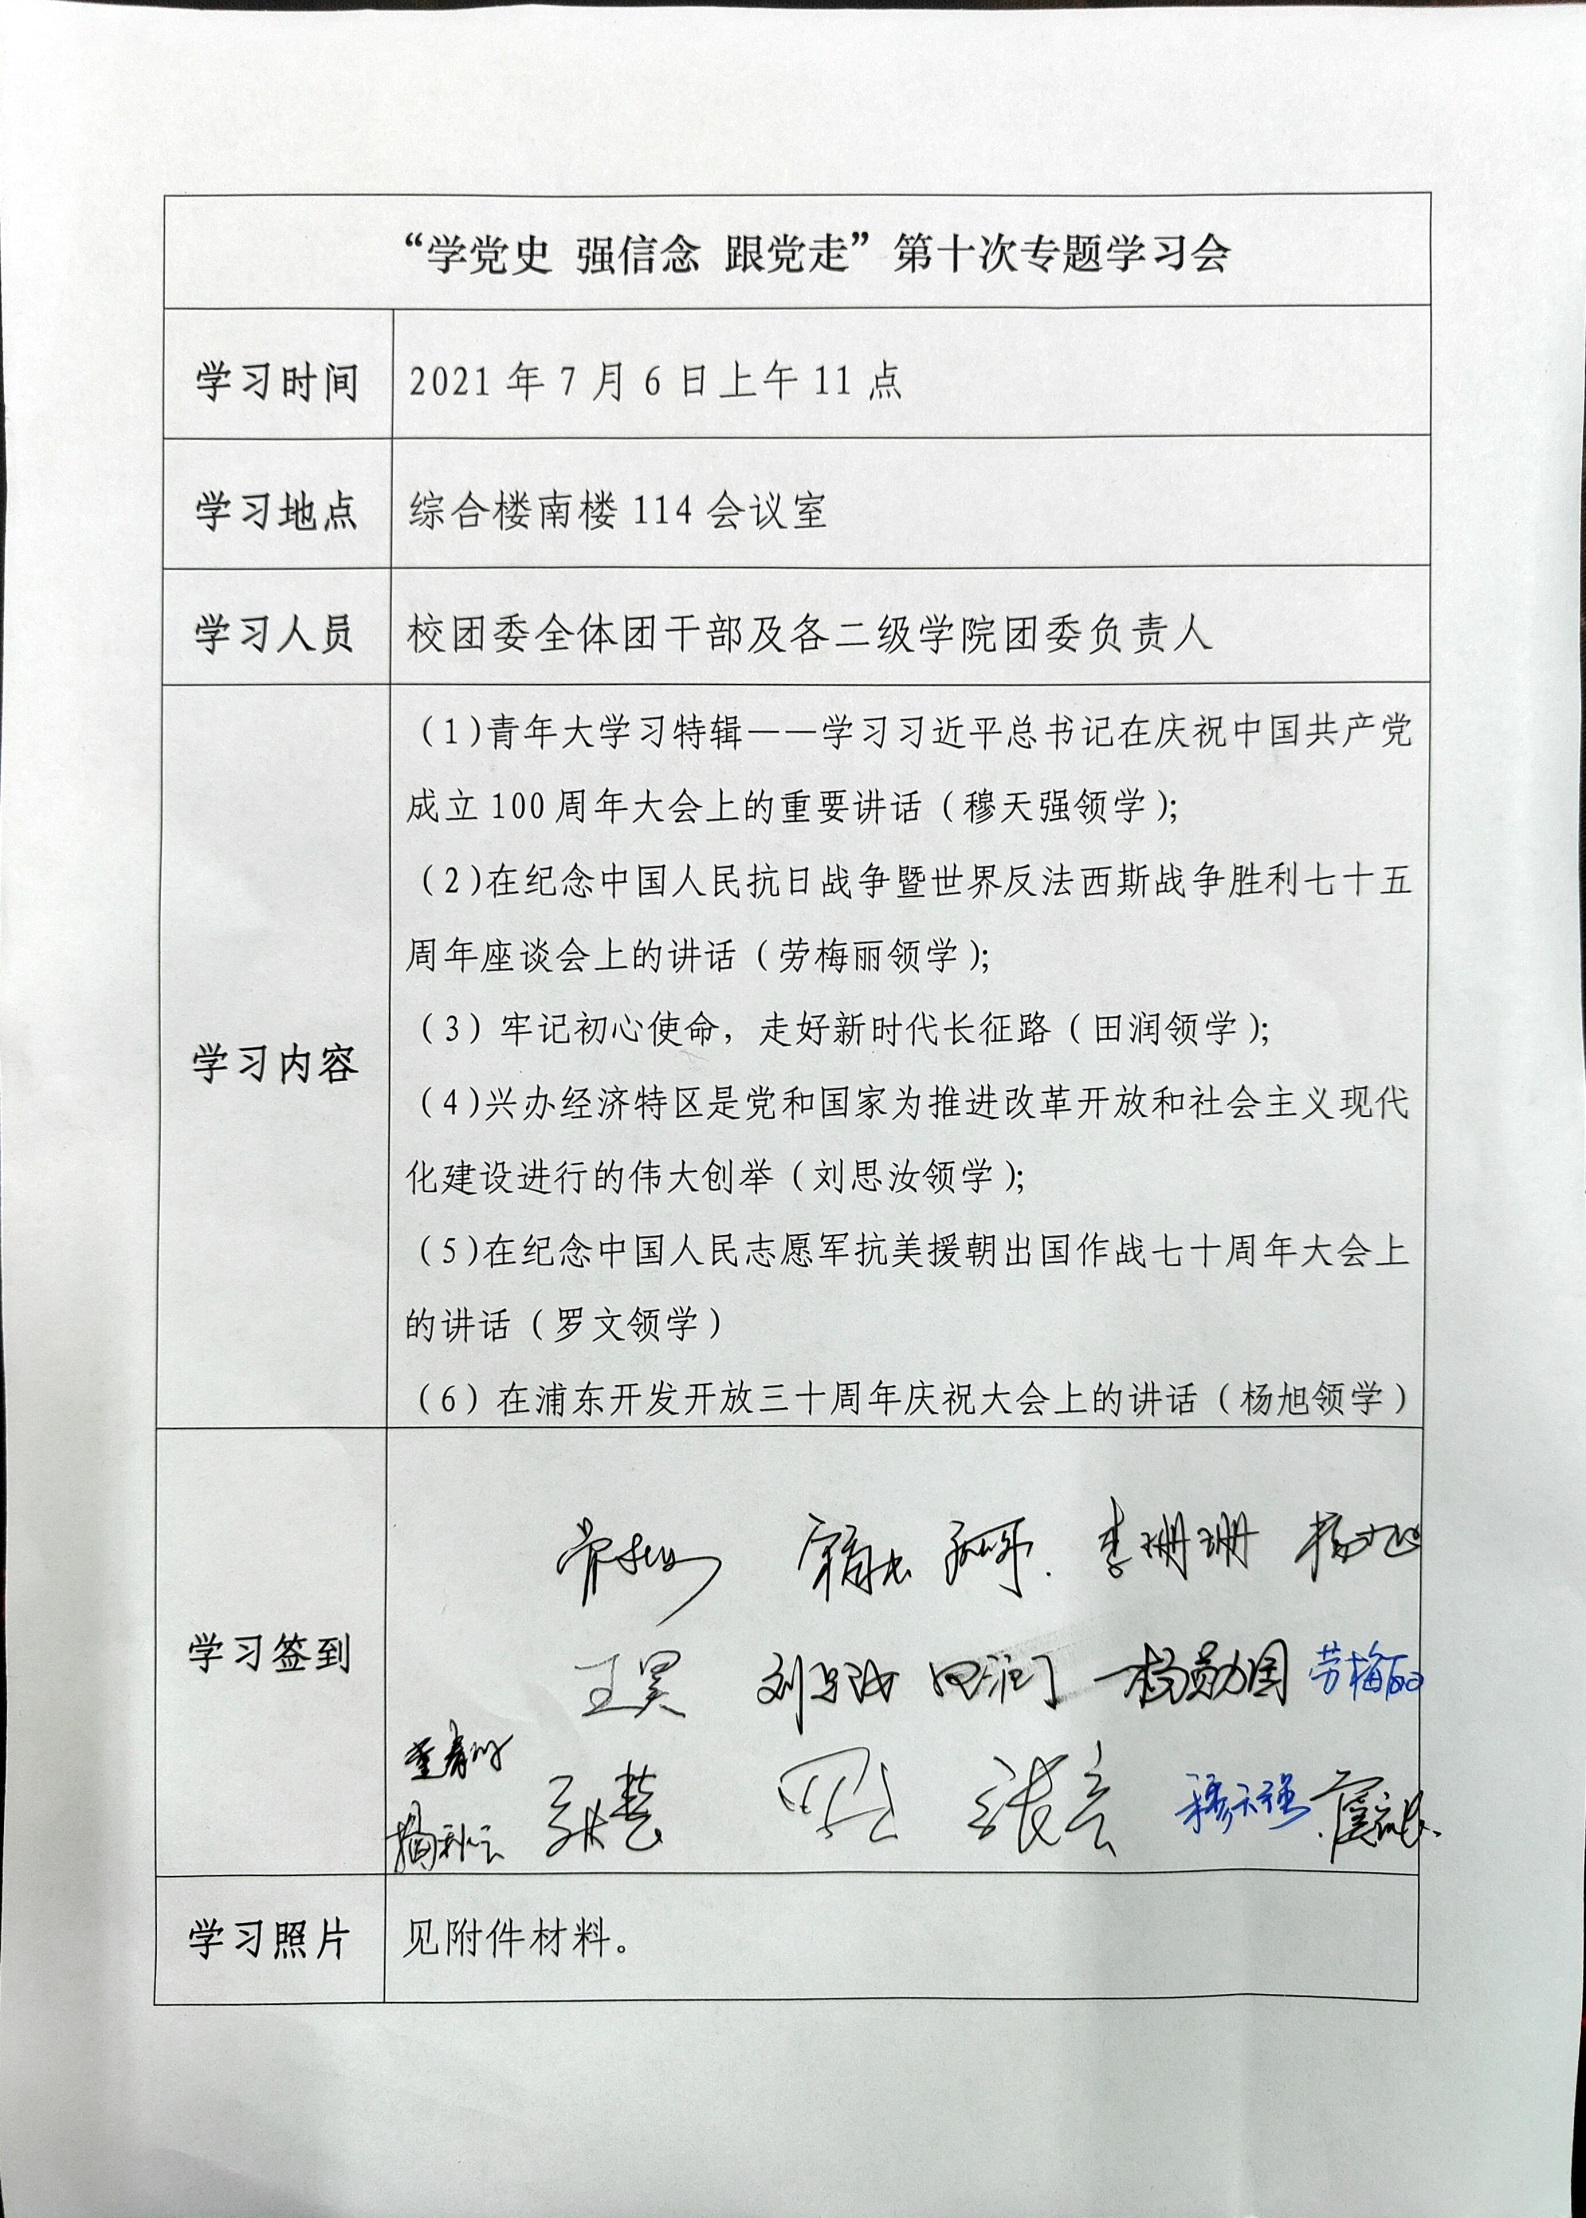 “学党史 强信念 跟党走”第十次专题学习会
学习时间
2021 年 7 月 6 日上午 11 点
学习地点
综合楼南楼 114 会议室
学习人员
校团委全体团干部及各二级学院团委负责人
学习内容
（1)青年大学习特辑——学习习近平总书记在庆祝中国共产党
成立 100 周年大会上的重要讲话（穆天强领学);
（2)在纪念中国人民抗日战争暨世界反法西斯战争胜利七十五
周年座谈会上的讲话（劳梅丽领学);
（3）牢记初心使命，走好新时代长征路（田润领学);
（4)兴办经济特区是党和国家为推进改革开放和社会主义现代
化建设进行的伟大创举（刘思汝领学);
（5)在纪念中国人民志愿军抗美援朝出国作战七十周年大会上
的讲话（罗文领学）
（6）在浦东开发开放三十周年庆祝大会上的讲话（杨旭领学）
学习签到
李珊珊 杨旭
王昊 刘思汝 田润 杨勋国 劳梅丽
罗文 张言 穆天强
学习照片
见附件材料。